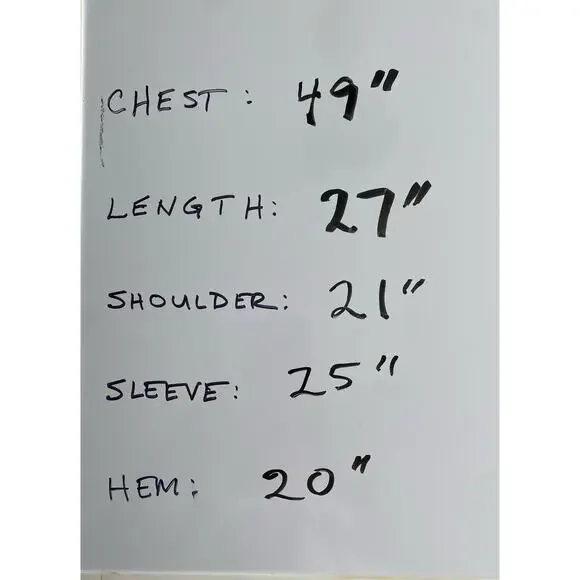 CHEST: 49"
LENGTH: 27"
SHOULDER: 21"
SLEEVE: 25"
HEM: 20"